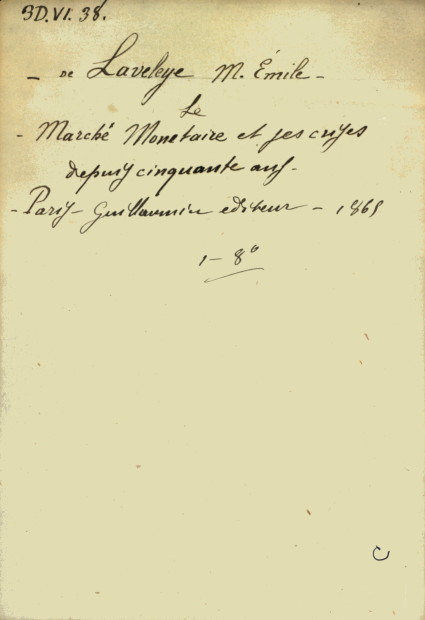 3D.VI.38.
- de Laveleye M. Émile -
Le
- Marché Monetaire et ses crises
depuis cinquante ans -
- Paris - Guillaumin editeur - 1865
1 - 8°
C